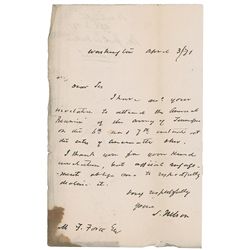 Washington April 3/71
Dear Sir
I have recd your
invitation to attend the annual
Reunion of the army of Tennessee
on the 6th and 7th instant at
the city of Cincinnati Ohio.
I thank you for your kind
invitation, but official engage-
ments oblige me to respectfully
decline it.
Very respectfully
yours
S. Nelson
M. F. Force Esq